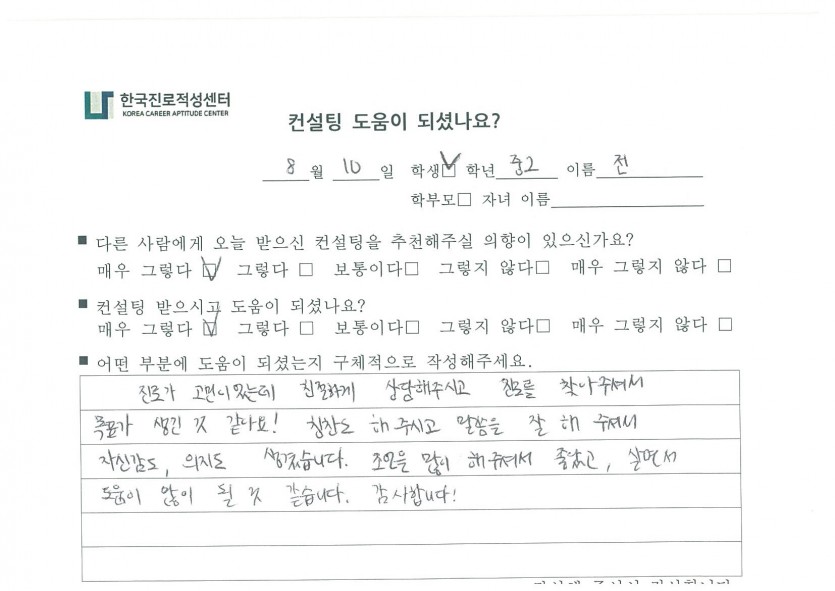 한국진로적성센터
KOREA CAREER APTITUDE CENTER
컨설팅 도움이 되셨나요?
8월 10일 학생☑ 학년 중2 이름 전
학부모□ 자녀 이름
■ 다른 사람에게 오늘 받으신 컨설팅을 추천해주실 의향이 있으신가요?
매우 그렇다 ☑ 그렇다 □ 보통이다□ 그렇지 않다□ 매우 그렇지 않다 □
■ 컨설팅 받으시고 도움이 되셨나요?
매우 그렇다 ☑ 그렇다 □ 보통이다□ 그렇지 않다□ 매우 그렇지 않다 □
■ 어떤 부분에 도움이 되셨는지 구체적으로 작성해주세요.
진로가 고민이었는데 친절하게 상담해주시고 진로를 찾아주셔서
목표가 생긴 것 같아요! 칭찬도 해 주시고 말씀을 잘 해 주셔서
자신감도, 의지도 생겼습니다. 조언을 많이 해주셔서 좋았고, 살면서
도움이 많이 될 것 같습니다. 감사합니다!